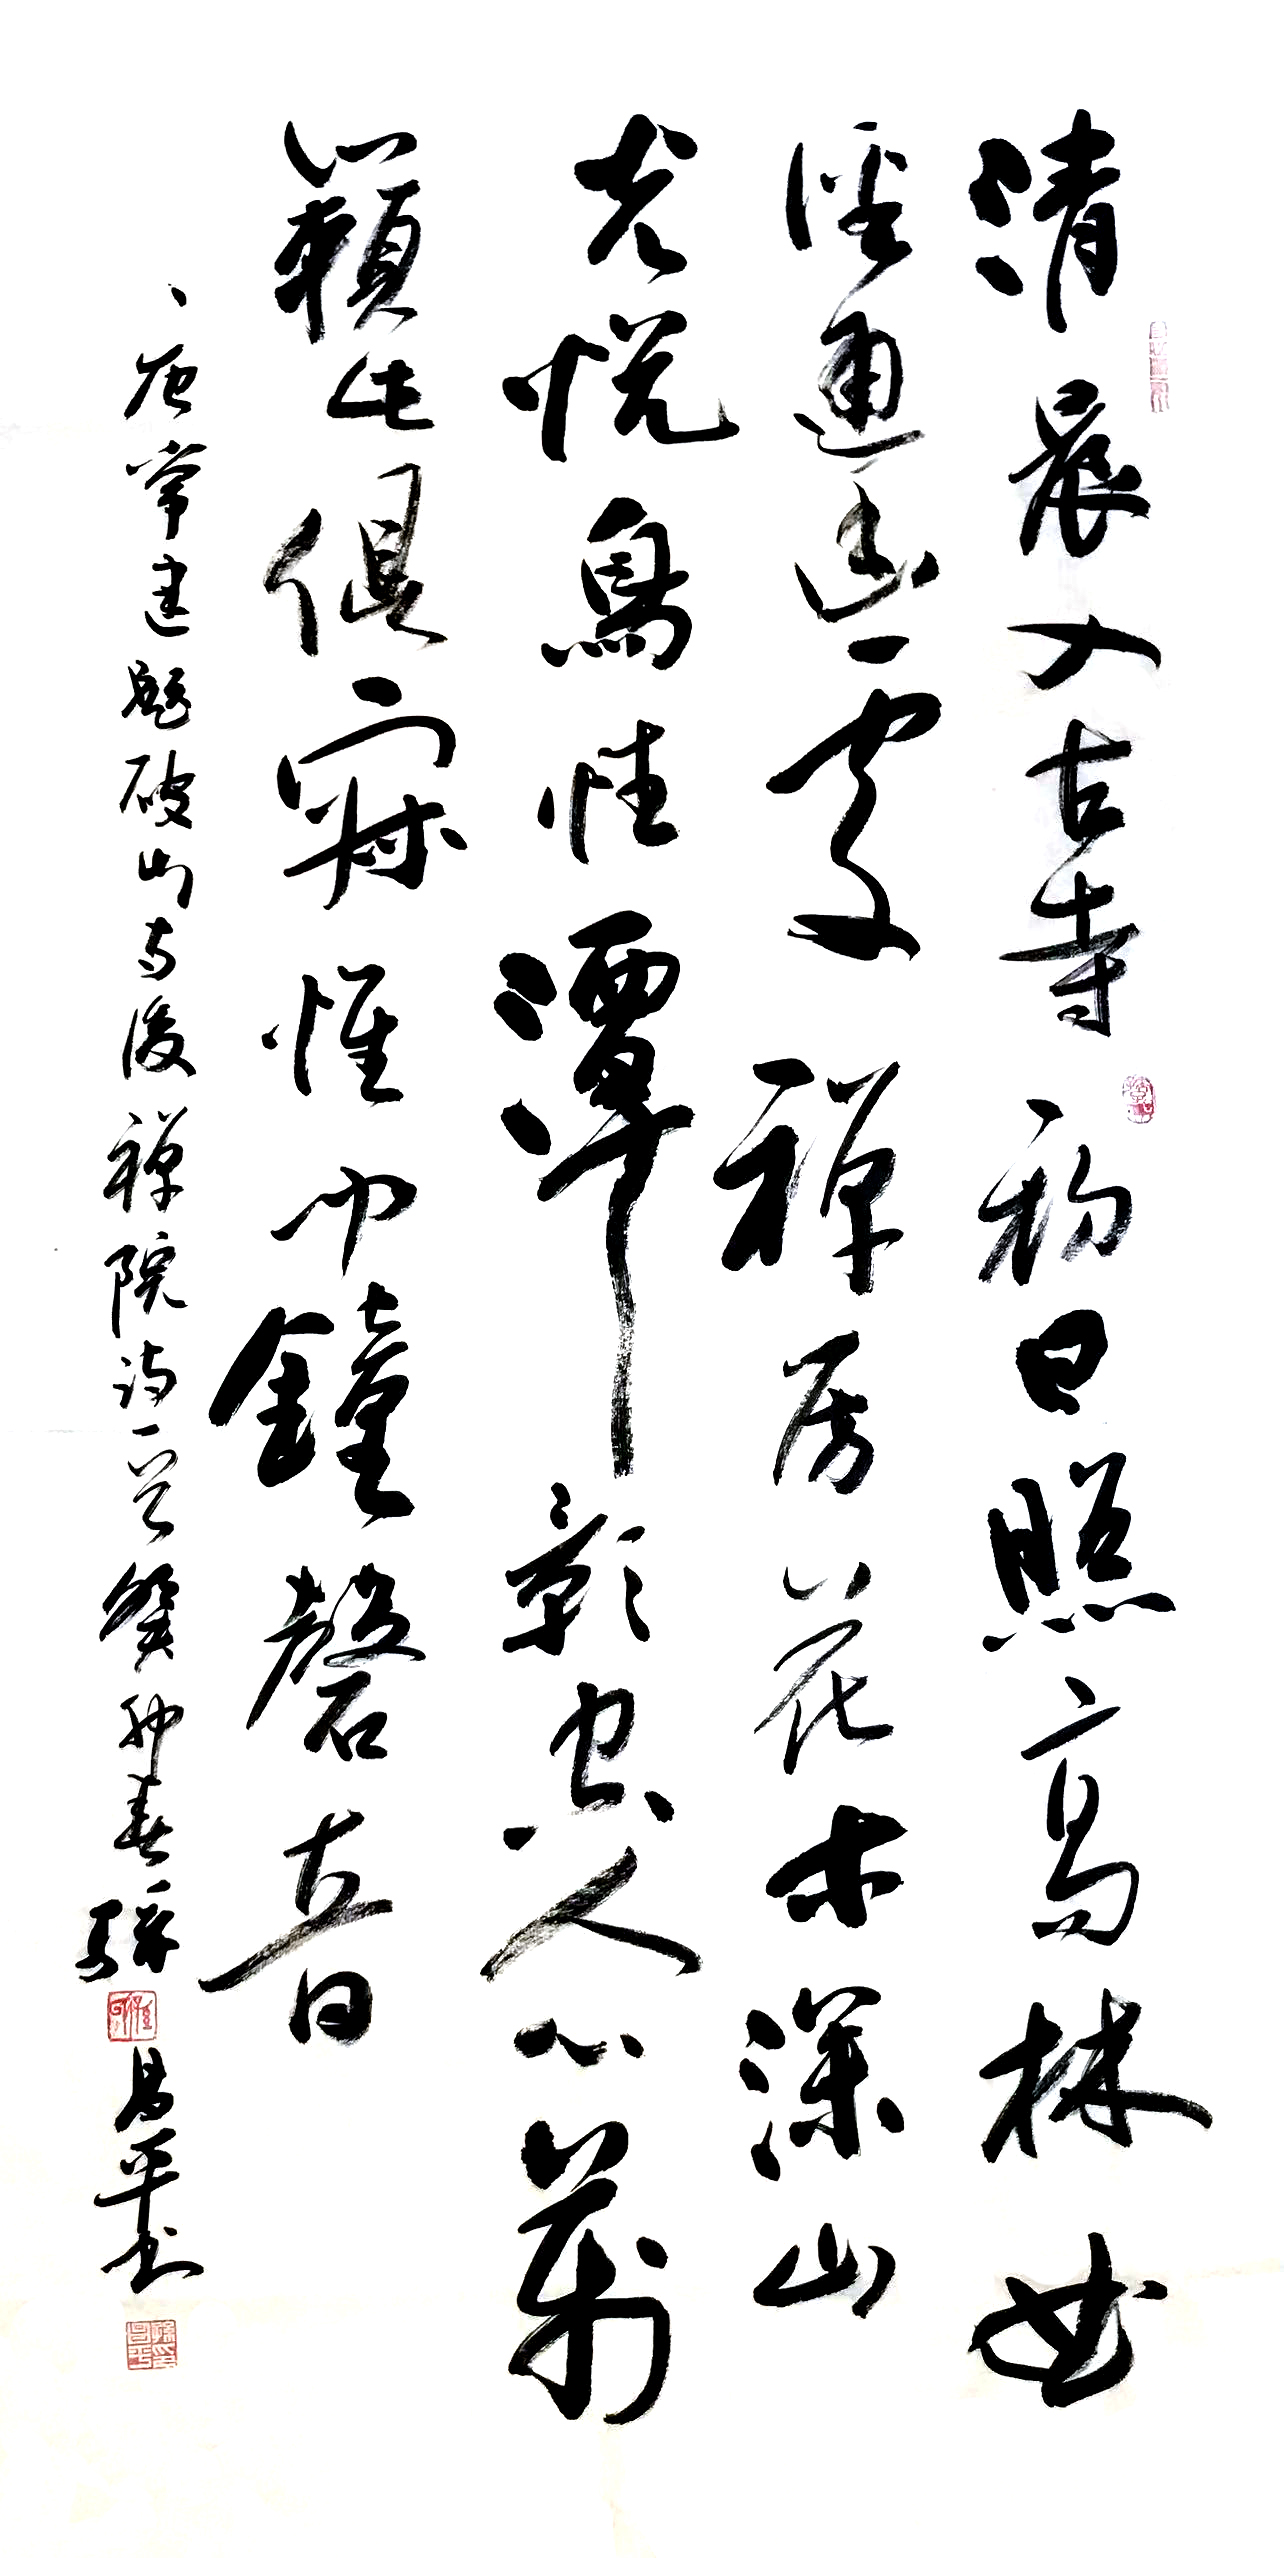 清晨入古寺初日照高林曲
徑通幽處禅房花木深山
光悦鳥性潭影空人心萬
籟此俱寂惟闻鐘磬音
唐常建題破山寺後禅院诗一首癸卯春孫昌平书